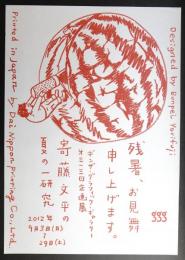 Designed by Bunpei Yorifuji
残暑、お見舞
申し上げます。
ギンザ・グラフィック・ギャラリー
第三一三回企画展
寄藤文平の
夏の一研究
2012年
9月3日(月)
29日(土)
ggg
Printed in Japan by Dai Nippon Printing Co., Ltd.